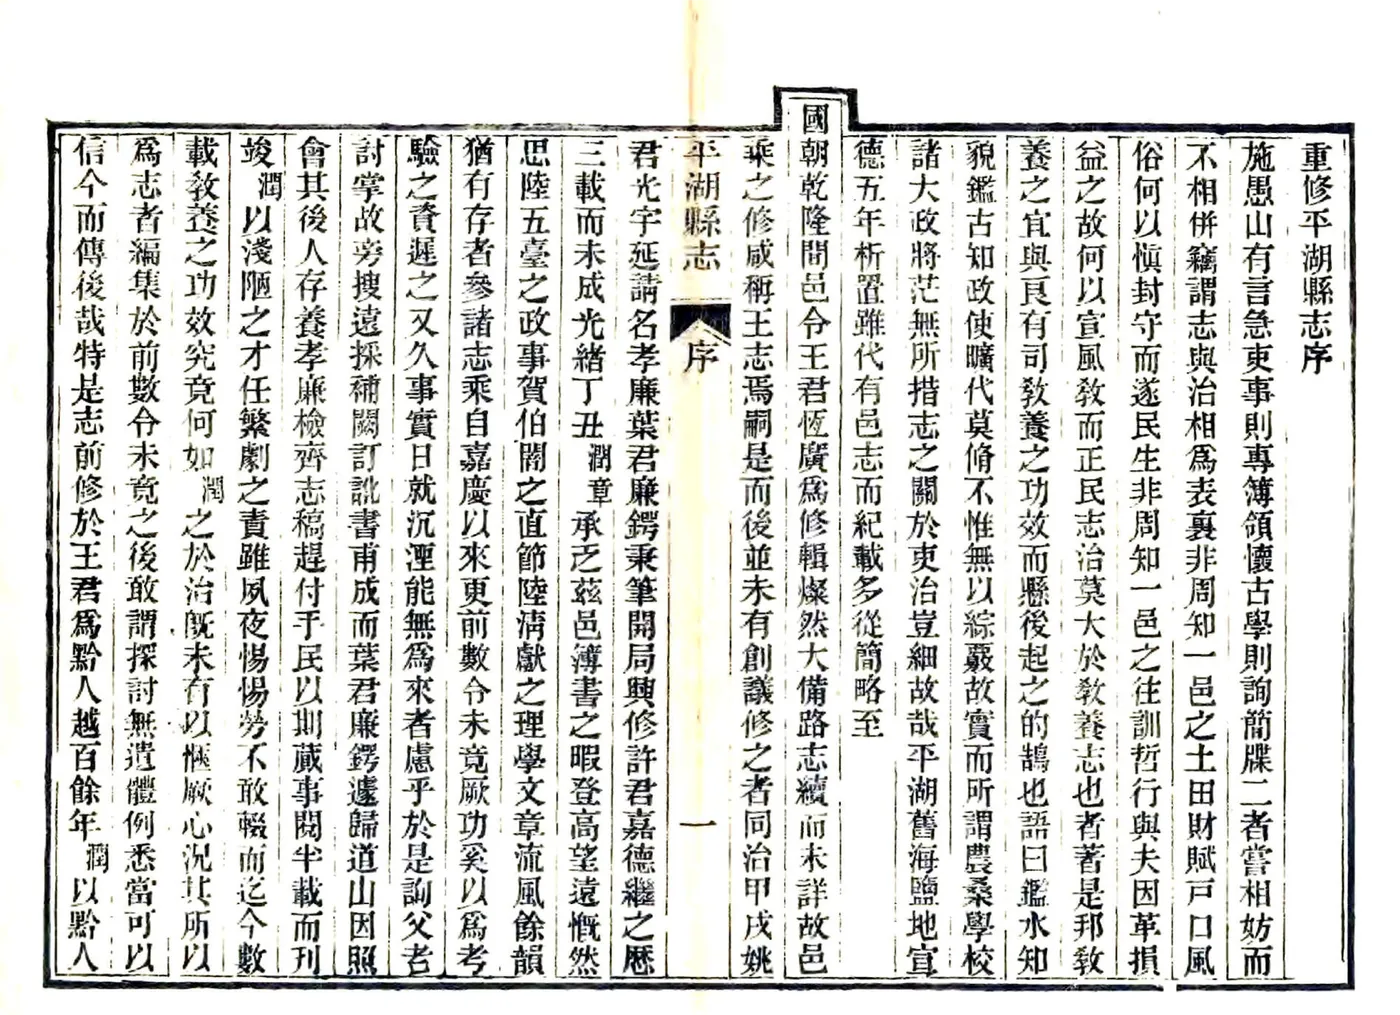 重修平湖縣志序
施愚山有言急吏事則專簿領懷古學則詢簡牒二者嘗相妨而
不相併竊謂志與治相為表裏非周知一邑之土田財賦戸口風
俗何以愼封守而遂民生非周知一邑之往訓哲行與夫因革損
益之故何以宣風敎而正民志治莫大於敎養志也者著是邦敎
養之宜與良有司敎養之功效而懸後起之的鵠也語曰鑑水知
貌鑑古知政使曠代莫脩不惟無以綜覈故實而所謂農桑學校
諸大政將茫無所措志之關於吏治豈細故哉平湖舊海鹽地宣
德五年析置雖代有邑志而紀載多從簡略至
國朝乾隆間邑令王君恆廣為修輯燦然大備路志續而未詳故邑
乘之修咸稱王志焉嗣是而後並未有創議修之者同治甲戌姚
平湖縣志 序 一
君光宇延請名孝廉葉君廉鍔秉筆開局興修許君嘉德繼之歷
三載而未成光緒丁丑潤章承乏茲邑簿書之暇登高望遠慨然
思陸五臺之政事賀伯闇之直節陸淸獻之理學文章流風餘韻
猶有存者參諸志乘自嘉慶以來更前數令未竟厥功奚以為考
驗之資遲之又久事實日就沉湮能無為來者慮乎於是詢父老
討掌故旁搜遠採補闕訂訛書甫成而葉君廉鍔遽歸道山因照
會其後人存養孝廉檢齊志稿趕付手民以剞蕆事閱半載而刊
竣潤以淺陋之才任繁劇之責雖夙夜惕惕勞不敢輟而迄今數
載敎養之功效究竟何如潤之於治旣未有以愜厥心況其所以
為志者編集於前數令未竟之後敢謂探討無遺體例悉當可以
信今而傳後哉特是志前修於王君為黔人越百餘年潤以黔人